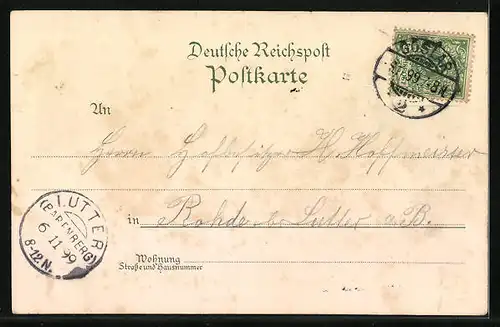 Deutsche Reichspost
Postkarte
GOSLAR
99
2 *
An
Herrn Hofbesitzer H. Hoffmeister
in Rohde b. Lutter a. B.
LUTTER
(BARENBERG)
6 11 99
8-12 N.
Wohnung
Straße und Hausnummer